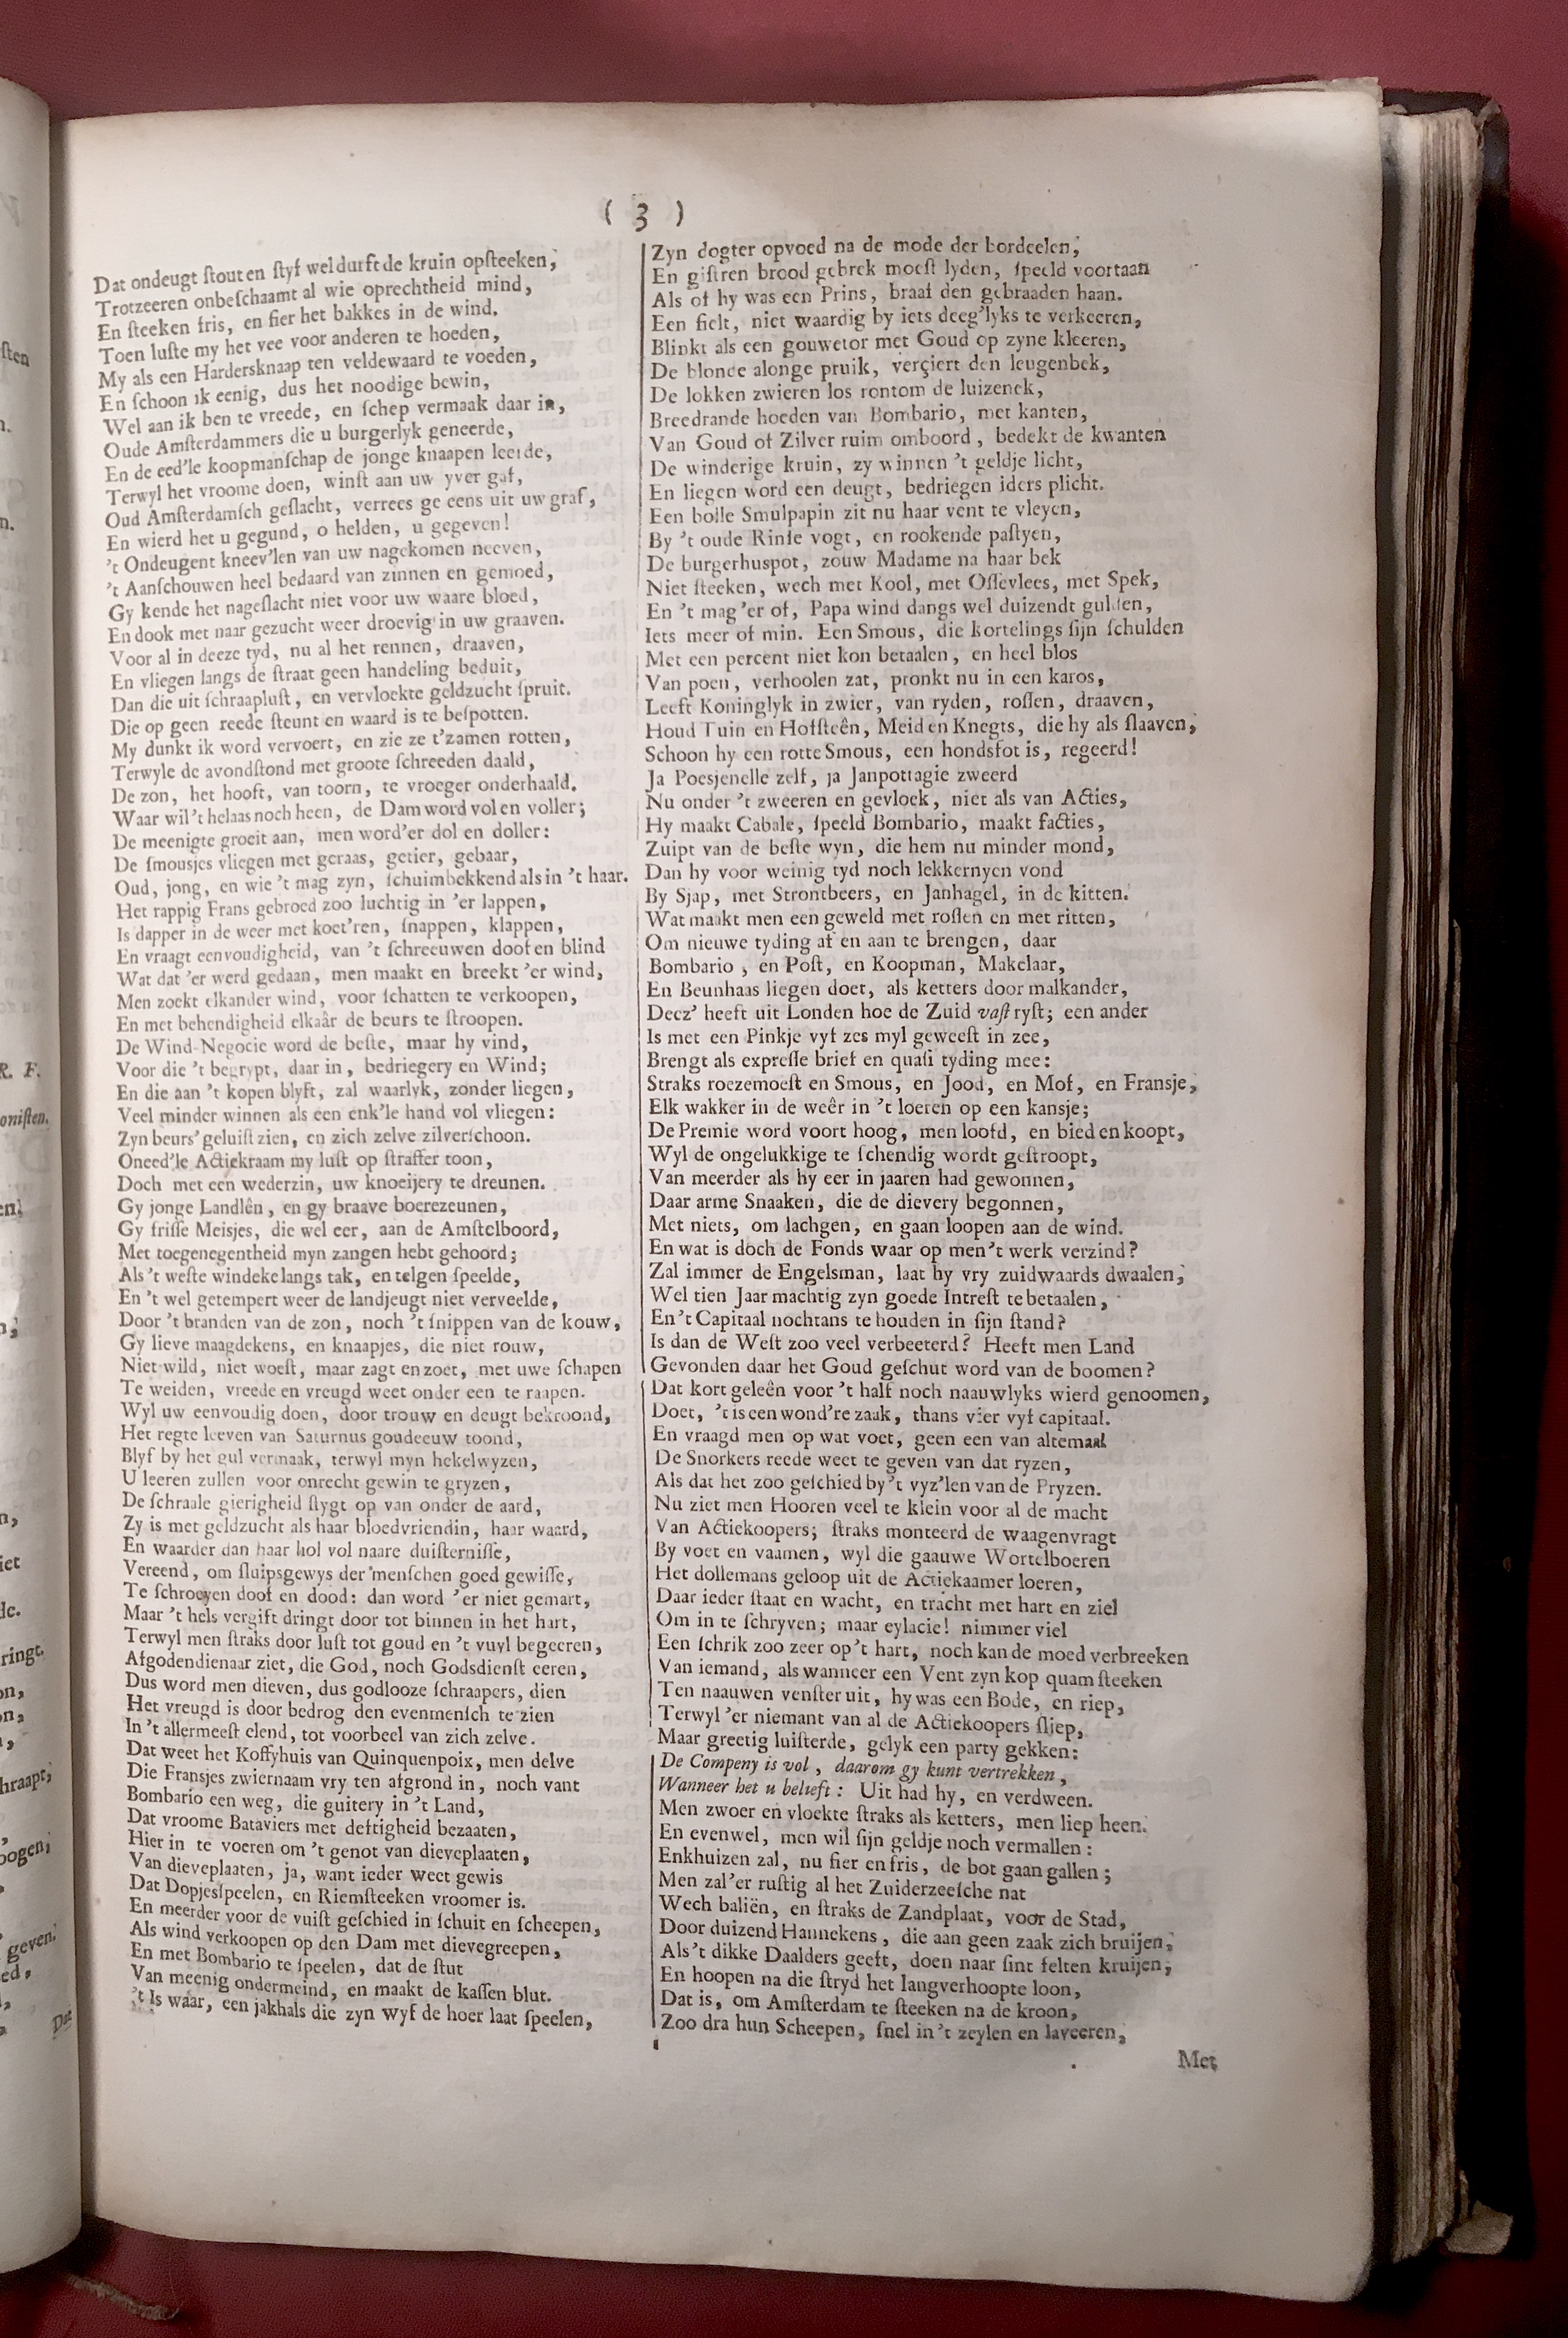 ( 3 )
Dat ondeugt ſtout en ſtyf wel durft de kruin opſteeken,
Trotzeeren onbeſchaamt al wie oprechtheid mind,
En ſteeken fris, en fier het bakkes in de wind.
Toen luſte my het vee voor anderen te hoeden,
My als een Hardersknaap ten veldewaard te voeden,
En ſchoon ik eenig, dus het noodige bewin,
Wel aan ik ben te vreede, en ſchep vermaak daar in,
Oude Amſterdammers die u burgerlyk geneerde,
En de eed'le koopmanſchap de jonge knaapen leerde,
Terwyl het vroome doen, winſt aan uw yver gaf,
Oud Amſterdamſch geſlacht, verrees ge eens uit uw graf,
En wierd het u gegund, o helden, u gegeven!
't Ondeugent kneev'len van uw nagekomen neeven,
't Aanſchouwen heel bedaard van zinnen en gemoed,
Gy kende het nageſlacht niet voor uw waare bloed,
En dook met naar gezucht weer droevig in uw graaven.
Voor al in deeze tyd, nu al het rennen, draaven,
En vliegen langs de ſtraat geen handeling beduit,
Dan die uit ſchraapluſt, en vervloekte geldzucht ſpruit.
Die op geen reede ſteunt en waard is te beſpotten.
My dunkt ik word vervoert, en zie ze t'zamen rotten,
Terwyle de avondſtond met groote ſchreeden daald,
De zon, het hooft, van toorn, te vroeger onderhaald.
Waar wil't helaas noch heen, de Dam word vol en voller;
De meenigte groeit aan, men word'er dol en doller:
De ſmousjes vliegen met geraas, getier, gebaar,
Oud, jong, en wie 't mag zyn, ſchuimbekkend als in 't haar.
Het rappig Frans gebroed zoo luchtig in 'er lappen,
Is dapper in de weer met koet'ren, ſnappen, klappen,
En vraagt eenvoudigheid, van 't ſchreeuwen doof en blind
Wat dat 'er werd gedaan, men maakt en breekt 'er wind,
Men zoekt elkander wind, voor ſchatten te verkoopen,
En met behendigheid elkaâr de beurs te ſtroopen.
De Wind-Negocie word de beſte, maar hy vind,
Voor die 't begrypt, daar in, bedriegery en Wind;
En die aan 't kopen blyft, zal waarlyk, zonder liegen,
Veel minder winnen als een enk'le hand vol vliegen:
Zyn beurs' geluiſt zien, en zich zelve zilverſchoon.
Oneed'le Actiekraam my luſt op ſtraffer toon,
Doch met een wederzin, uw knoeijery te dreunen.
Gy jonge Landlên, en gy braave boerezeunen,
Gy friſſe Meisjes, die wel eer, aan de Amſtelboord,
Met toegenegentheid myn zangen hebt gehoord;
Als 't weſte windeke langs tak, en telgen ſpeelde,
En 't wel getempert weer de landjeugt niet verveelde,
Door 't branden van de zon, noch 't ſnippen van de kouw,
Gy lieve maagdekens, en knaapjes, die niet rouw,
Niet wild, niet woeſt, maar zagt en zoet, met uwe ſchapen
Te weiden, vreede en vreugd weet onder een te raapen.
Wyl uw eenvoudig doen, door trouw en deugt bekroond,
Het regte leeven van Saturnus goudeeuw toond,
Blyf by het gul vermaak, terwyl myn hekelwyzen,
U leeren zullen voor onrecht gewin te gryzen,
De ſchraale gierigheid ſtygt op van onder de aard,
Zy is met geldzucht als haar bloedvriendin, haar waard,
En waarder dan haar hol vol naare duiſterniſſe,
Vereend, om ſluipsgewys der menſchen goed gewiſſe,
Te ſchroeyen doof en dood: dan word 'er niet gemart,
Maar 't hels vergift dringt door tot binnen in het hart,
Terwyl men ſtraks door luſt tot goud en 't vuyl begeeren,
Afgodendienaar ziet, die God, noch Godsdienſt eeren,
Dus word men dieven, dus godlooze ſchraapers, dien
Het vreugd is door bedrog den evenmenſch te zien
In 't allermeeſt elend, tot voorbeel van zich zelve.
Dat weet het Koffyhuis van Quinquenpoix, men delve
Die Fransjes zwiernaam vry ten afgrond in, noch vant
Bombario een weg, die guitery in 't Land,
Dat vroome Bataviers met deftigheid bezaaten,
Hier in te voeren om 't genot van dieveplaaten,
Van dieveplaaten, ja, want ieder weet gewis
Dat Dopjesſpeelen, en Riemſteeken vroomer is.
En meerder voor de vuiſt geſchied in ſchuit en ſcheepen,
Als wind verkoopen op den Dam met dievegreepen,
En met Bombario te ſpeelen, dat de ſtut
Van meenig ondermeind, en maakt de kaſſen blut.
't Is waar, een jakhals die zyn wyf de hoer laat ſpeelen,
Zyn dogter opvoed na de mode der bordeelen,
En giſtren brood gebrek moeſt lyden, ſpeeld voortaan
Als of hy was een Prins, braaf den gebraaden haan.
Een fielt, niet waardig by iets deeg'lyks te verkeeren,
Blinkt als een gouwetor met Goud op zyne kleeren,
De blonde alonge pruik, verçiert den leugenbek,
De lokken zwieren los rontom de luizenek,
Breedrande hoeden van Bombario, met kanten,
Van Goud of Zilver ruim omboord, bedekt de kwanten
De winderige kruin, zy winnen 't geldje licht,
En liegen word een deugt, bedriegen iders plicht.
Een bolle Smulpapin zit nu haar vent te vleyen,
By 't oude Rinſe vogt, en rookende paſtyen,
De burgerhuspot, zouw Madame na haar bek
Niet ſteeken, wech met Kool, met Oſſevlees, met Spek,
En 't mag 'er of, Papa wind dangs wel duizendt gulden,
Iets meer of min. Een Smous, die kortelings ſijn ſchulden
Met een percent niet kon betaalen, en heel blos
Van poen, verhoolen zat, pronkt nu in een karos,
Leeft Koninglyk in zwier, van ryden, roſſen, draaven,
Houd Tuin en Hofſteên, Meid en Knegts, die hy als ſlaaven,
Schoon hy een rotte Smous, een hondsfot is, regeerd!
Ja Poesjenelle zelf, ja Janpottagie zweerd
Nu onder 't zweeren en gevloek, niet als van Acties,
Hy maakt Cabale, ſpeeld Bombario, maakt facties,
Zuipt van de beſte wyn, die hem nu minder mond,
Dan hy voor weinig tyd noch lekkernyen vond
By Sjap, met Strontbeers, en Janhagel, in de kitten.
Wat maakt men een geweld met roſſen en met ritten,
Om nieuwe tyding af en aan te brengen, daar
Bombario, en Poſt, en Koopman, Makelaar,
En Beunhaas liegen doet, als ketters door malkander,
Deez' heeft uit Londen hoe de Zuid vaſt ryſt; een ander
Is met een Pinkje vyf zes myl geweeſt in zee,
Brengt als expreſſe brief en quaſi tyding mee:
Straks roezemoeſt en Smous, en Jood, en Mof, en Fransje,
Elk wakker in de weêr in 't loeren op een kansje;
De Premie word voort hoog, men loofd, en bied en koopt,
Wyl de ongelukkige te ſchendig wordt geſtroopt,
Van meerder als hy eer in jaaren had gewonnen,
Daar arme Snaaken, die de dievery begonnen,
Met niets, om lachgen, en gaan loopen aan de wind.
En wat is doch de Fonds waar op men 't werk verzind?
Zal immer de Engelsman, laat hy vry zuidwaards dwaalen,
Wel tien Jaar machtig zyn goede Intreſt te betaalen,
En 't Capitaal nochtans te houden in ſijn ſtand?
Is dan de Weſt zoo veel verbeeterd? Heeft men Land
Gevonden daar het Goud geſchut word van de boomen?
Dat kort geleên voor 't half noch naauwlyks wierd genoomen,
Doet, 't is een wond're zaak, thans vier vyf capitaal.
En vraagd men op wat voet, geen een van altemaal
De Snorkers reede weet te geven van dat ryzen,
Als dat het zoo geſchied by 't vyz'len van de Pryzen.
Nu ziet men Hooren veel te klein voor al de macht
Van Actiekoopers; ſtraks monteerd de waagenvragt
By voet en vaamen, wyl die gaauwe Wortelboeren
Het dollemans geloop uit de Actiekaamer loeren,
Daar ieder ſtaat en wacht, en tracht met hart en ziel
Om in te ſchryven; maar eylacie! nimmer viel
Een ſchrik zoo zeer op 't hart, noch kan de moed verbreeken
Van iemand, als wanneer een Vent zyn kop quam ſteeken
Ten naauwen venſter uit, hy was een Bode, en riep,
Terwyl 'er niemant van al de Actiekoopers ſliep,
Maar greetig luiſterde, gelyk een party gekken:
De Compeny is vol, daarom gy kunt vertrekken,
Wanneer het u belieft: Uit had hy, en verdween.
Men zwoer en vloekte ſtraks als ketters, men liep heen.
En evenwel, men wil ſijn geldje noch vermallen:
Enkhuizen zal, nu fier en fris, de bot gaan gallen;
Men zal'er ruſtig al het Zuiderzeeſche nat
Wech baliën, en ſtraks de Zandplaat, voor de Stad,
Door duizend Hannekens, die aan geen zaak zich bruijen,
Als 't dikke Daalders geeft, doen naar ſint felten kruijen,
En hoopen na die ſtryd het langverhoopte loon,
Dat is, om Amſterdam te ſteeken na de kroon,
Zoo dra hun Scheepen, ſnel in 't zeylen en laveeren,
Met